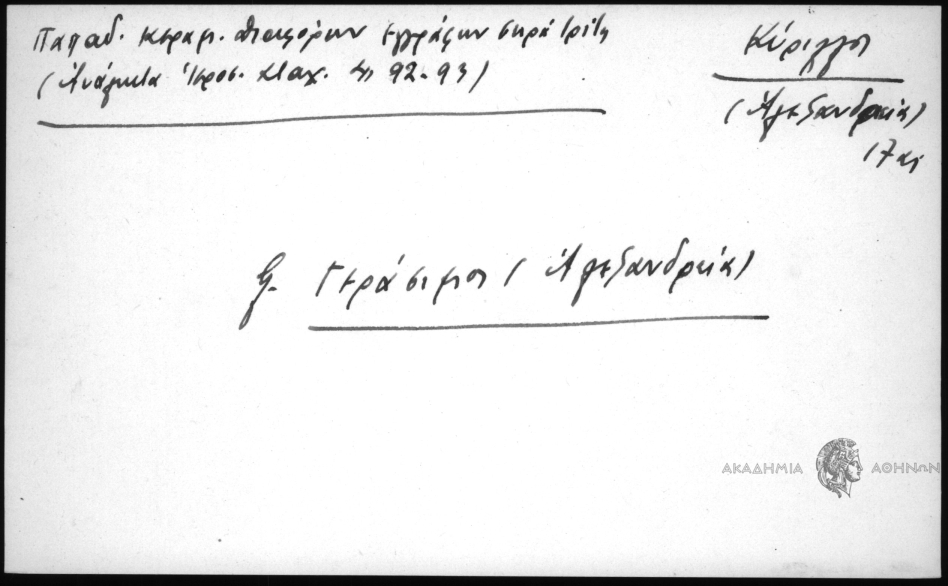 Παπαδ. Κεραμ. διαφόρων εγγράφων σειρά τρίτη
(Ἀνάλεκτα Ἱεροσ. Σταχ. 92-93)
Κύριλλος
(Ἀλεξανδρεία)
17 αι
Γεράσιμος (Ἀλεξανδρεία)
ΑΚΑΔΗΜΙΑ ΑΘΗΝΩΝ